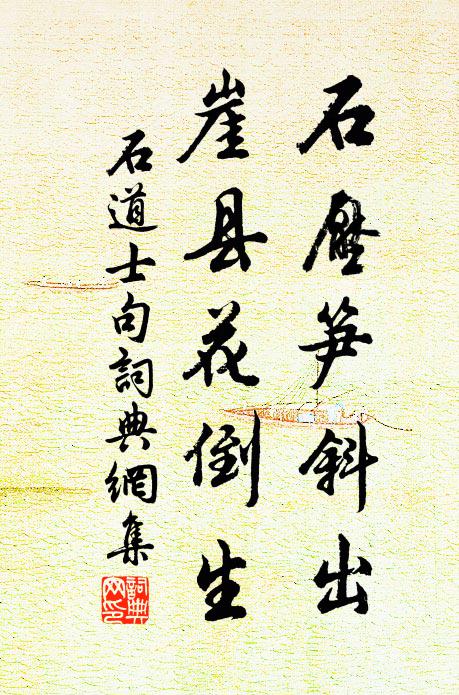 石壓笋斜出
崖县花倒生
石道士句詞典網集
詞典網印